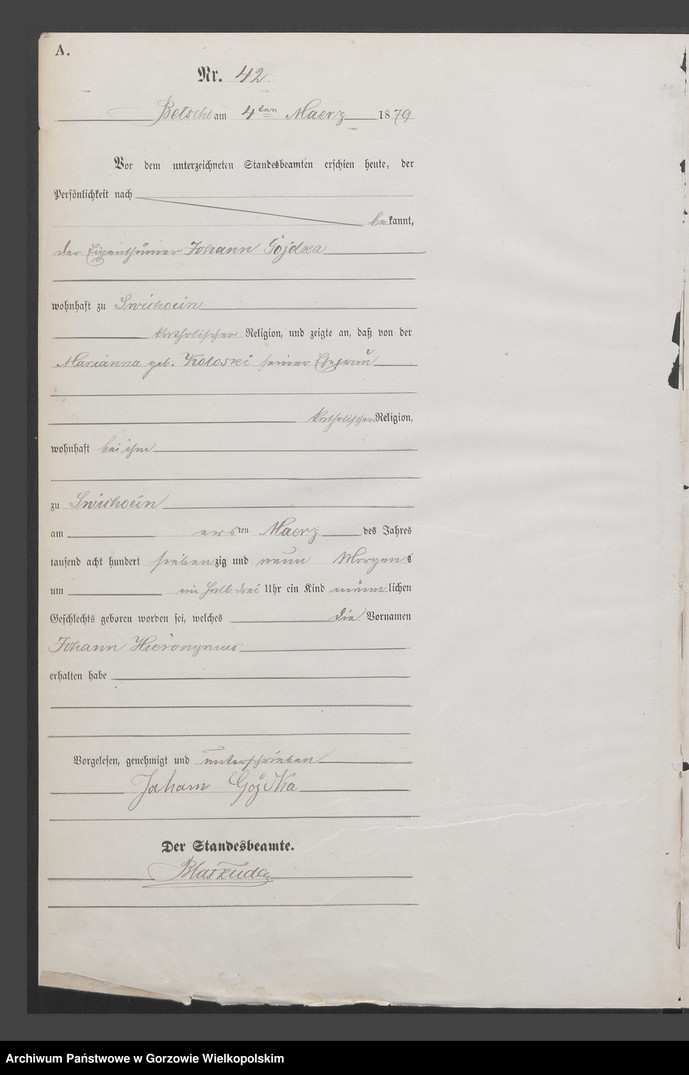 A.
Nr. 42
Betsche am 4ten Maerz 1879
Vor dem unterzeichneten Standesbeamten erschien heute, der
Persönlichkeit nach
bekannt,
der Eigenthümer Johann Gojdka
wohnhaft zu Swichocin
katholischer Religion, und zeigte an, daß von der
Marianna geb. Kotoski seiner Ehefrau
katholischer Religion,
wohnhaft bei ihm
zu Swichocin
am ersten Maerz des Jahres
tausend acht hundert siebenzig und neun Morgens
um ein halb drei Uhr ein Kind männlichen
Geschlechts geboren worden sei, welches die Vornamen
Johann Hieronymus
erhalten habe
Vorgelesen, genehmigt und unterschrieben
Der Standesbeamte.
Archiwum Państwowe w Gorzowie Wielkopolskim